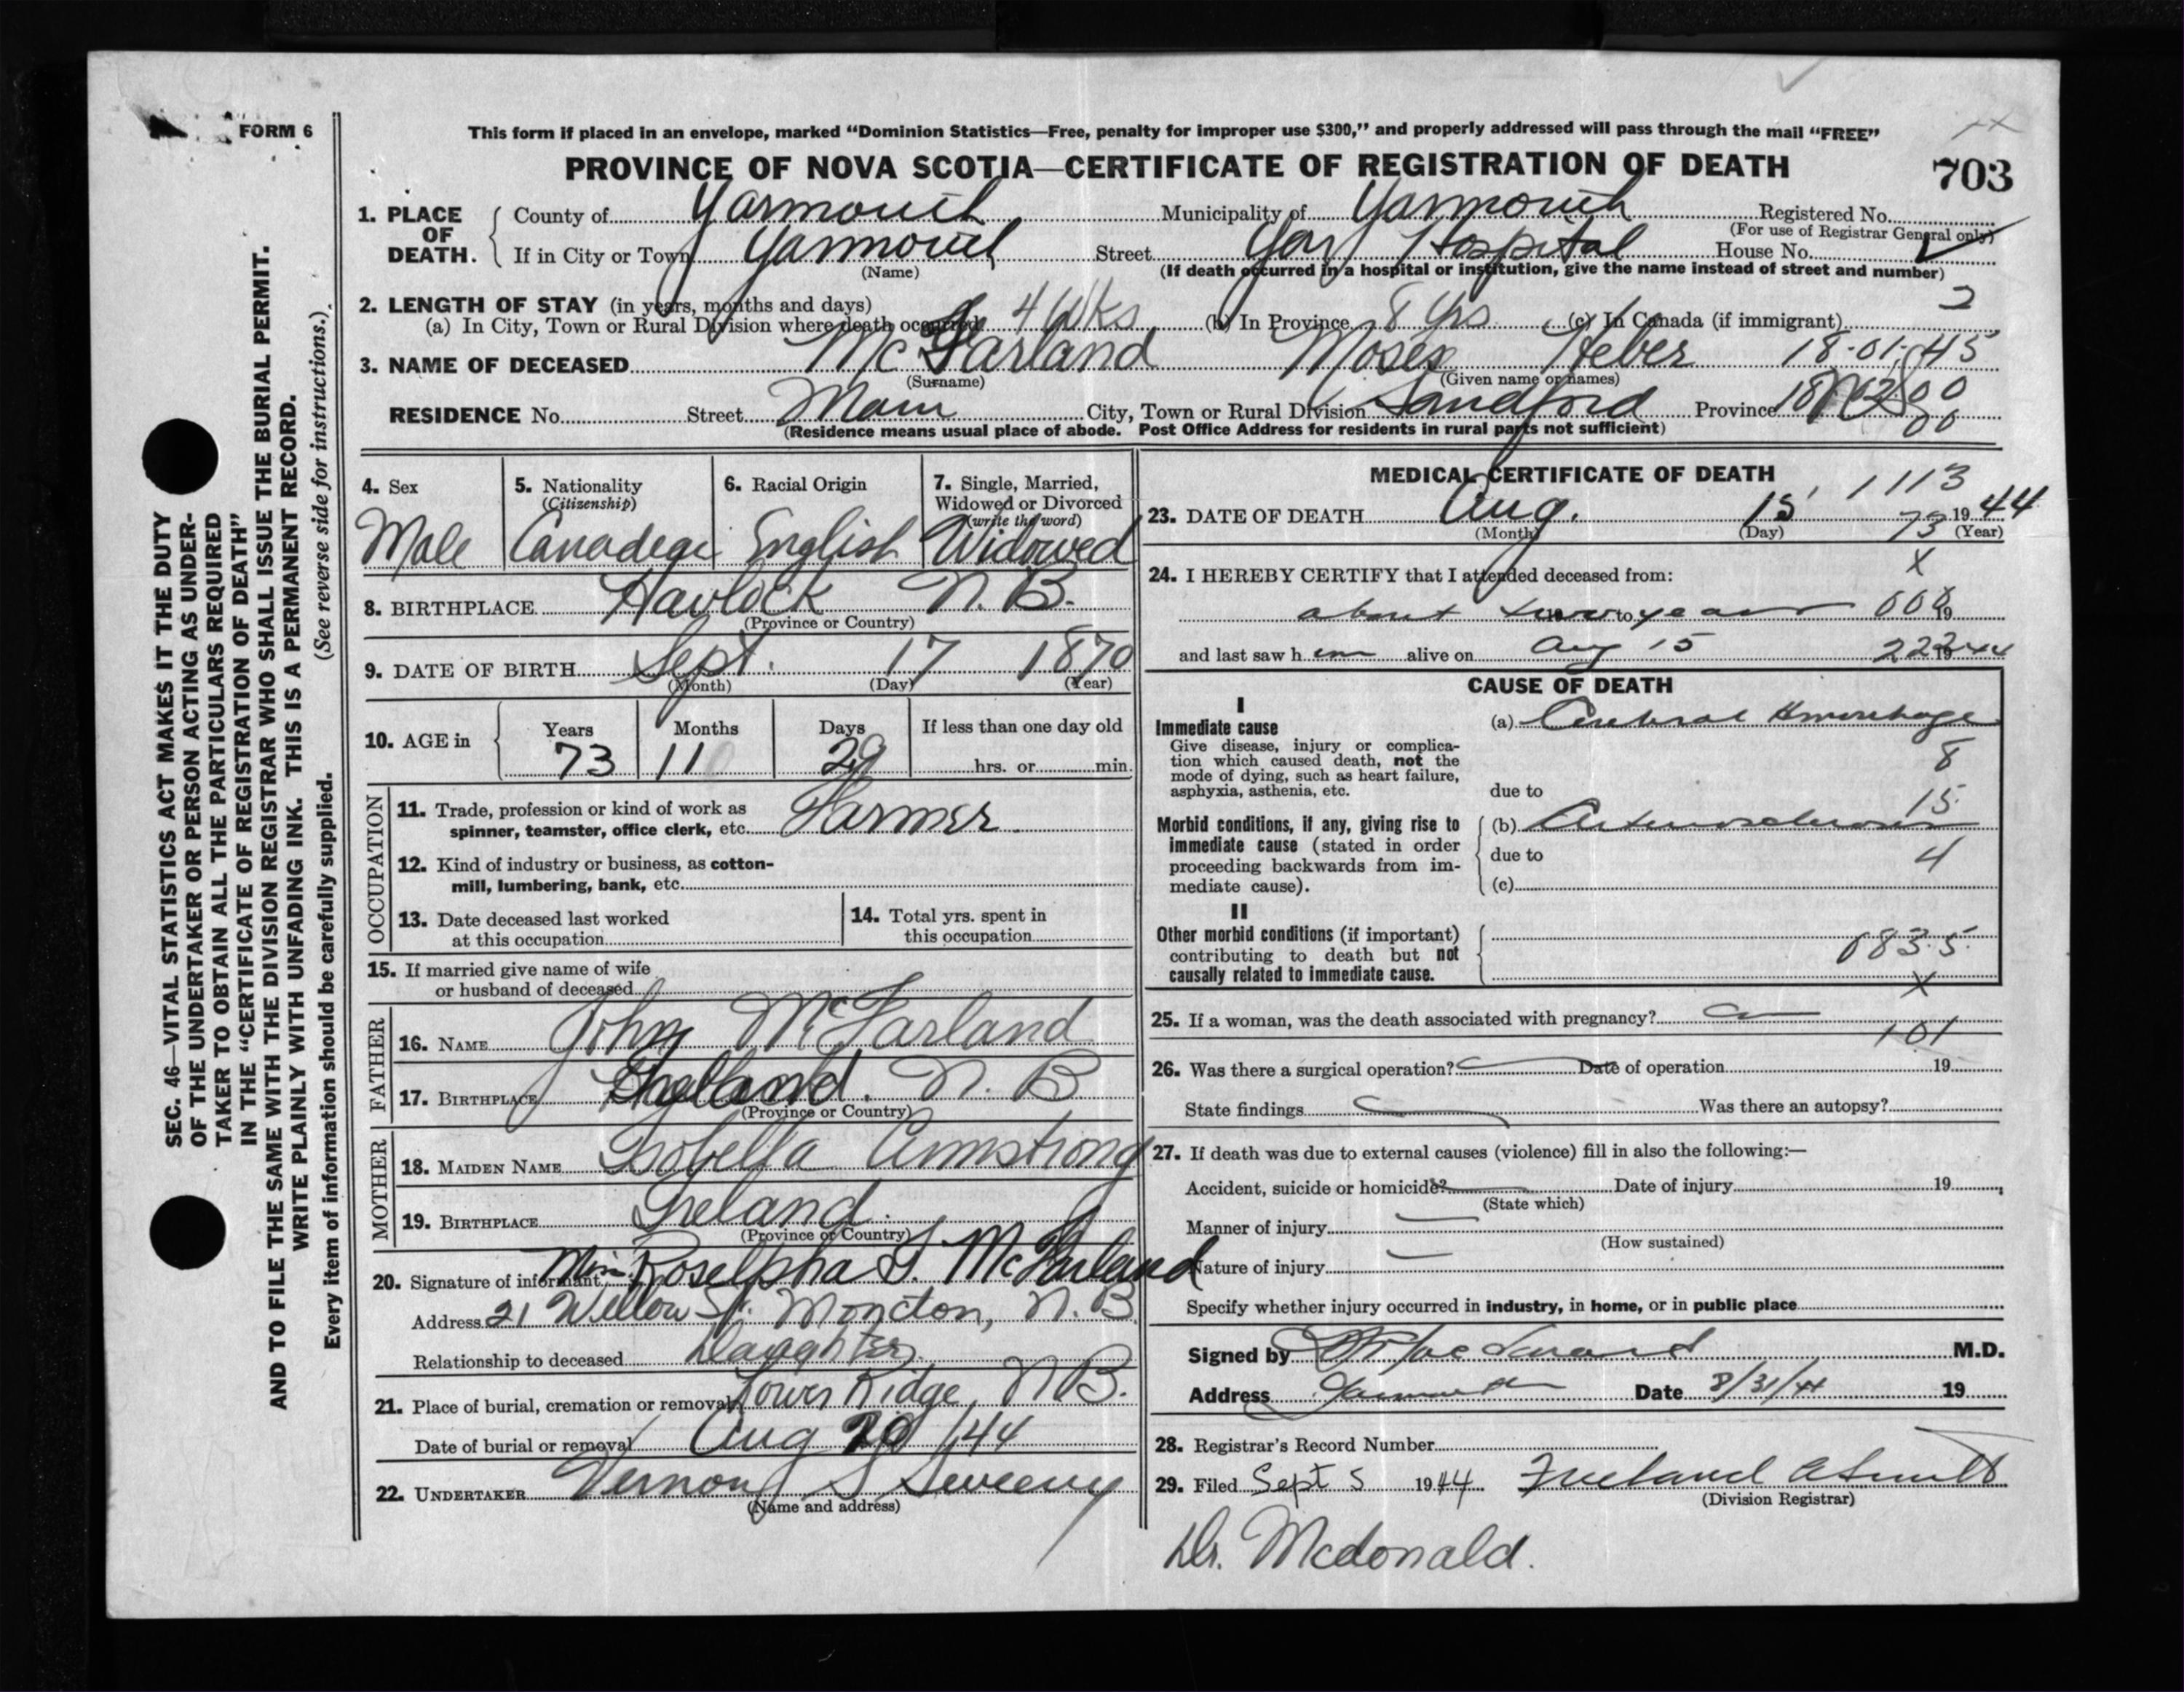 FORM 6
This form if placed in an envelope, marked “Dominion Statistics—Free, penalty for improper use $300,” and properly addressed will pass through the mail “FREE”
PROVINCE OF NOVA SCOTIA—CERTIFICATE OF REGISTRATION OF DEATH
703
1. PLACE OF DEATH. County of Yarmouth Municipality of Yarmouth Registered No.
(For use of Registrar General only)
If in City or Town Yarmouth Street Yar Hospital House No.
(Name) (If death occurred in a hospital or institution, give the name instead of street and number)
2. LENGTH OF STAY (in years, months and days) 2
(a) In City, Town or Rural Division where death occurred 4 Wks (b) In Province 8 Yrs. (c) In Canada (if immigrant)
3. NAME OF DECEASED McFarland Moses Heber 18-01-45
(Surname) (Given name or names)
RESIDENCE No. Street Main City, Town or Rural Division Sandford Province
(Residence means usual place of abode. Post Office Address for residents in rural parts not sufficient)
4. Sex 5. Nationality (Citizenship) 6. Racial Origin 7. Single, Married, Widowed or Divorced (write the word)
Male English Widowed
8. BIRTHPLACE Havlock N.B.
(Province or Country)
9. DATE OF BIRTH Sept. 17 1870
(Month) (Day) (Year)
10. AGE in Years Months Days If less than one day old
73 11 29 hrs. or min.
OCCUPATION
11. Trade, profession or kind of work as
spinner, teamster, office clerk, etc. Farmer
12. Kind of industry or business, as cotton-
mill, lumbering, bank, etc.
13. Date deceased last worked
at this occupation
14. Total yrs. spent in
this occupation
15. If married give name of wife
or husband of deceased
FATHER
16. NAME John McFarland
17. BIRTHPLACE N.B.
(Province or Country)
MOTHER
18. MAIDEN NAME Isobella Armstrong
19. BIRTHPLACE Ireland.
(Province or Country)
20. Signature of informant Miss Roselpha S. McFarland
Address 21 Willow St. Moncton, N.B
Relationship to deceased Daughter
21. Place of burial, cremation or removal Lower Ridge, N.B.
Date of burial or removal Aug /44
22. UNDERTAKER Vernon S Sweeny
(Name and address)
MEDICAL CERTIFICATE OF DEATH
1113
23. DATE OF DEATH Aug. 15 1944
73
(Month) (Day) (Year)
X
24. I HEREBY CERTIFY that I attended deceased from:
about two to years 19
and last saw him alive on Aug 15 1944
CAUSE OF DEATH
I
Immediate cause (a) Cerebral Hmorrhage
Give disease, injury or complica-
tion which caused death, not the
mode of dying, such as heart failure,
asphyxia, asthenia, etc. due to
8
15
Morbid conditions, if any, giving rise to
immediate cause (stated in order
proceeding backwards from im-
mediate cause).
(b) Arteriosclerosis
due to 4
(c)
II
Other morbid conditions (if important)
contributing to death but not
causally related to immediate cause.
083.5.
X
25. If a woman, was the death associated with pregnancy?
101
26. Was there a surgical operation? Date of operation 19
State findings Was there an autopsy?
27. If death was due to external causes (violence) fill in also the following:—
Accident, suicide or homicide? Date of injury 19
(State which)
Manner of injury
(How sustained)
Nature of injury
Specify whether injury occurred in industry, in home, or in public place
Signed by M.D.
Address Yarmouth Date 8/31/44 19
28. Registrar's Record Number
29. Filed Sept 5 1944
(Division Registrar)
Dr. Mcdonald.
SEC. 46—VITAL STATISTICS ACT MAKES IT THE DUTY
OF THE UNDERTAKER OR PERSON ACTING AS UNDER-
TAKER TO OBTAIN ALL THE PARTICULARS REQUIRED
IN THE “CERTIFICATE OF REGISTRATION OF DEATH”
AND TO FILE THE SAME WITH THE DIVISION REGISTRAR WHO SHALL ISSUE THE BURIAL PERMIT.
WRITE PLAINLY WITH UNFADING INK. THIS IS A PERMANENT RECORD.
Every item of information should be carefully supplied. (See reverse side for instructions.)